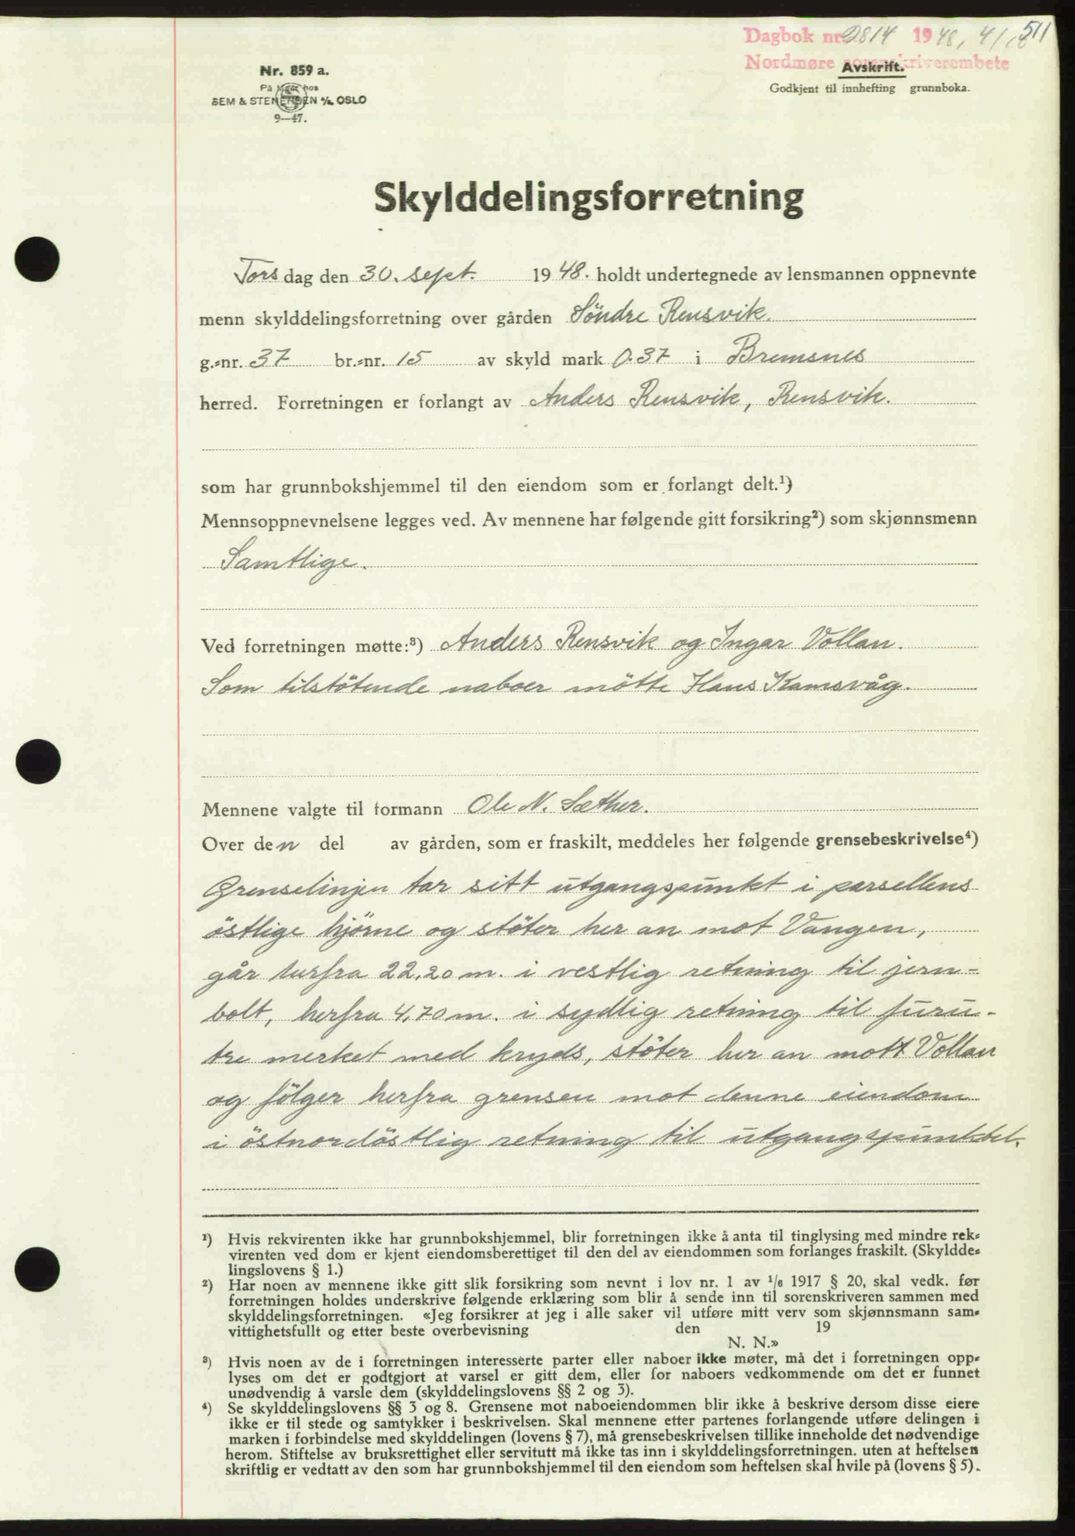 Dagbok nr. 2814 1948, 4/10 511
Nordmøre sorenskriverembete
Avskrift.
Godkjent til innhefting grunnboka.
Nr. 859 a.
På lager hos
SEM & STENERSEN A/S, OSLO
9—47.
Skylddelingsforretning
Torsdag den 30. sept. 1948. holdt undertegnede av lensmannen oppnevnte
menn skylddelingsforretning over gården Söndre Rensvik.
g.-nr. 37 br.-nr. 15 av skyld mark 0.37 i Bremsnes
herred. Forretningen er forlangt av Anders Rensvik, Rensvik.
som har grunnbokshjemmel til den eiendom som er forlangt delt.¹)
Mennsoppnevnelsene legges ved. Av mennene har følgende gitt forsikring²) som skjønnsmenn
Samtlige.
Ved forretningen møtte:³) Anders Rensvik og Ingar Vollan.
Som tilstötende naboer mötte Hans Kamsvåg.
Mennene valgte til formann Ole N. Sæther.
Over den del av gården, som er fraskilt, meddeles her følgende grensebeskrivelse⁴)
Grenselinjen tar sitt utgangspunkt i parsellens
östlige hjörne og stöter her an mot Vangen,
går herfra 22,20 m. i vestlig retning til jern-
bolt, herfra 4,70 m. i sydlig retning til furu-
tre merket med kryds, stöter her an mott Vollan
og fölger herfra grensen mot denne eiendom
i östnordöstlig retning til utgangspunktet.
¹) Hvis rekvirenten ikke har grunnbokshjemmel, blir forretningen ikke å anta til tinglysing med mindre rek-
virenten ved dom er kjent eiendomsberettiget til den del av eiendommen som forlanges fraskilt. (Skyldde-
lingslovens § 1.)
²) Har noen av mennene ikke gitt slik forsikring som nevnt i lov nr. 1 av 1/6 1917 § 20, skal vedk. før
forretningen holdes underskrive følgende erklæring som blir å sende inn til sorenskriveren sammen med
skylddelingsforretningen. «Jeg forsikrer at jeg i alle saker vil utføre mitt verv som skjønnsmann sam-
vittighetsfullt og etter beste overbevisning den 19
N. N.»
³) Hvis noen av de i forretningen interesserte parter eller naboer ikke møter, må det i forretningen opp-
lyses om det er godtgjort at varsel er gitt dem, eller for naboers vedkommende om det er funnet
unødvendig å varsle dem (skylddelingslovens §§ 2 og 3).
⁴) Se skylddelingslovens §§ 3 og 8. Grensene mot naboeiendommen blir ikke å beskrive dersom disse eiere
ikke er til stede og samtykker i beskrivelsen. Skal mennene etter partenes forlangende utføre delingen i
marken i forbindelse med skylddelingen (lovens § 7), må grensebeskrivelsen tillike inneholde det nødvendige
herom. Stiftelse av bruksrettighet eller servitutt må ikke tas inn i skylddelingsforretningen, uten at heftelsen
skriftlig er vedtatt av den som har grunnbokshjemmel til den eiendom som heftelsen skal hvile på (lovens § 5).